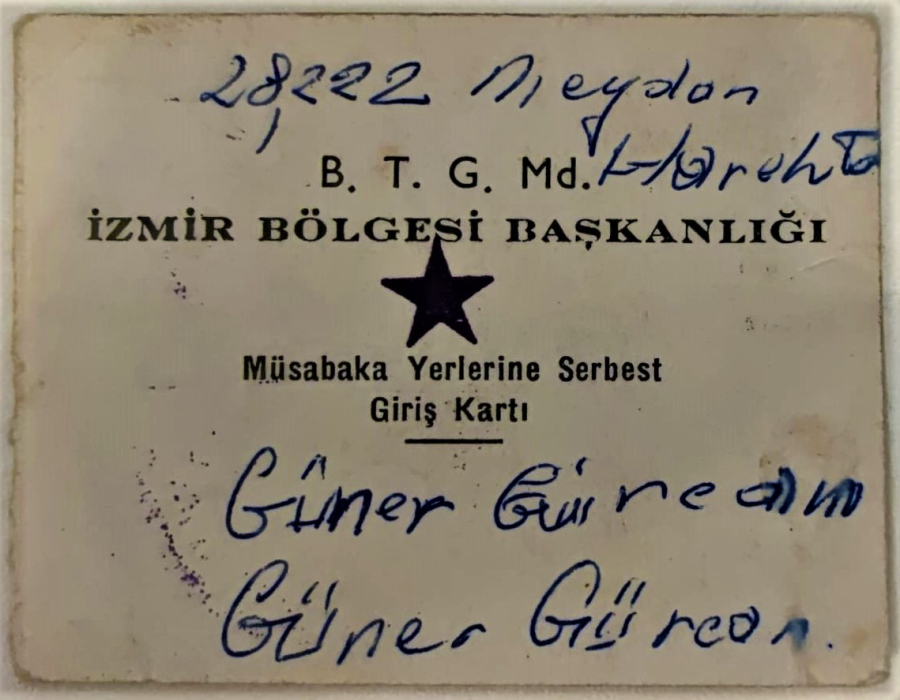 28,222 Meydan
B. T. G. Md. Harekâ
İZMİR BÖLGESİ BAŞKANLIĞI
Müsabaka Yerlerine Serbest
Giriş Kartı
Güner Gürcan
Güner Gürcan.